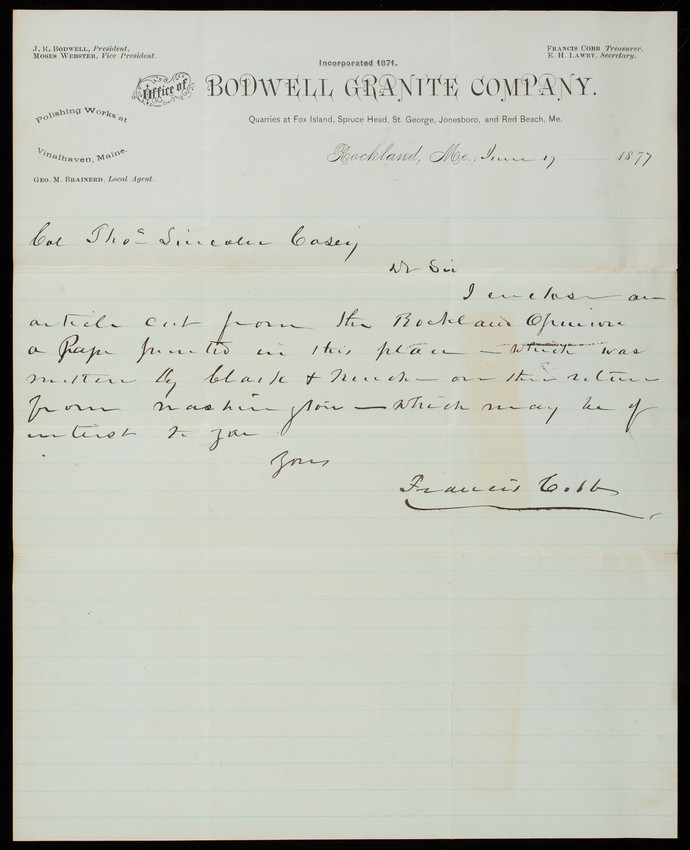 J. R. BODWELL, President,
MOSES WEBSTER, Vice President.
FRANCIS COBB Treasurer.
E. H. LAWRY, Secretary.
Incorporated 1871.
Office of BODWELL GRANITE COMPANY.
Quarries at Fox Island, Spruce Head, St. George, Jonesboro, and Red Beach, Me.
Polishing Works at
Vinalhaven, Maine.
GEO. M. BRAINERD, Local Agent.
Rockland, Me., June 17 1877
Col Thos Lincoln Casey
Dr Sir
I enclose an
article cut from the Rockland Opinion
a Paper printed in this place — which was
written by on their return
from Washington — which may be of
interest to you
Yours
Francis Cobb